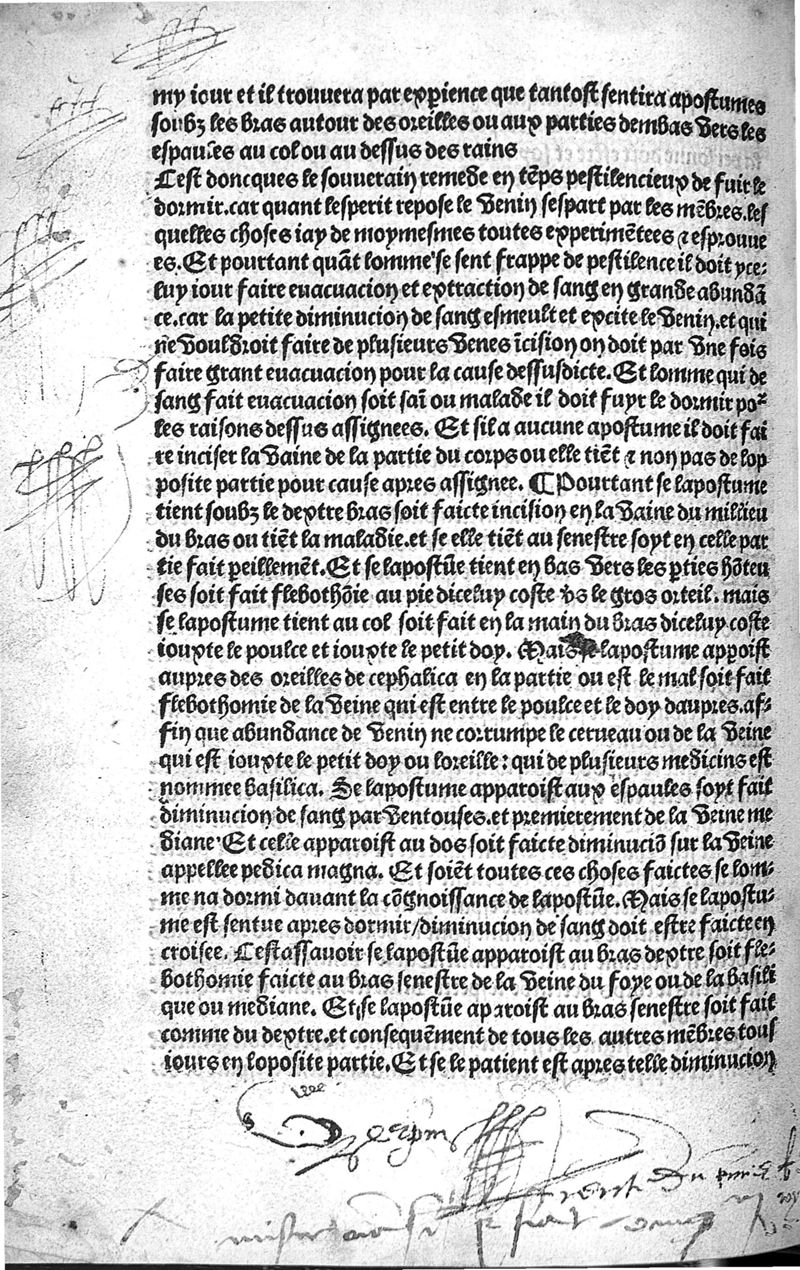 my iour et il trouuera par exꝑience que tantost sentira apostumes
soubz les bras autour des oreilles ou aux parties dembas vers les
espaules au col ou au dessus des rains
Cest doncques le souuerain remede en tẽps pestilencieux de fuir le
dormir.car quant lesperit repose le venin sespart par les mẽbres.les
quelles choses iay de moymesmes toutes experimẽtees ⁊ esprouue
es.Et pourtant quãt lomme se sent frappe de pestilence il doit yce⸗
luy iour faire euacuacion et extraction de sang en grande abundã
ce.car la petite diminucion de sang esmeult et excite le venin.et qui
ne vouldroit faire de plusieurs venes ĩcision on doit par vne fois
faire grant euacuacion pour la cause dessusdicte.Et lomme qui de
sang fait euacuacion soit saĩ ou malade il doit fuyr le dormir poꝛ᷑
les raisons dessus assignees. Et sil a aucune apostume il doit fai
re inciser la vaine de la partie du corps ou elle tiẽt ⁊ non pas de lop
posite partie pour cause apres assignee. ¶ Pourtant se lapostume
tient soubz le dextre bras soit faicte incision en la vaine du milieu
du bras ou tiẽt la maladie.et se elle tiẽt au senestre soyt en celle par
tie fait ꝑeillemẽt.Et se lapostũe tient en bas vers les ꝑties hõteu
ses soit fait flebothõie au pie diceluy coste v̾s le gros orteil. mais
se lapostume tient au col soit fait en la main du bras diceluy coste
iouxte le poulce et iouxte le petit doy. Mais se lapostume apꝑoist
aupres des oreilles de cephalica en la partie ou est le mal soit fait
flebothomie de la veine qui est entre le poulce et le doy daupres.af⸗
fin que abundance de venin ne corrumpe le cerueau ou de la veine
qui est iouxte le petit doy ou loreille: qui de plusieurs medicins est
nommee basilica. Se lapostume apparoist aux espaules soyt fait
diminucion de sang par ventouses.et premierement de la veine me
diane.Et celle apparoist au dos soit faicte diminuciõ sur la veine
appellee pedica magna. Et soiẽt toutes ces choses faictes se lom⸗
me na dormi dauant la cõgnoissance de lapostũe.Mais se lapostu⸗
me est sentue apres dormir/diminucion de sang doit estre faicte en
croisee. Cestassauoir se lapostũe apparoist au bras dextre soit fle⸗
bothomie faicte au bras senestre de la veine du foye ou de la basili
que ou mediane. Et se lapostũe aparoist au bras senestre soit fait
comme du dextre.et consequẽment de tous les autres mẽbres tous
iours en loposite partie.Et se le patient est apres telle diminucion